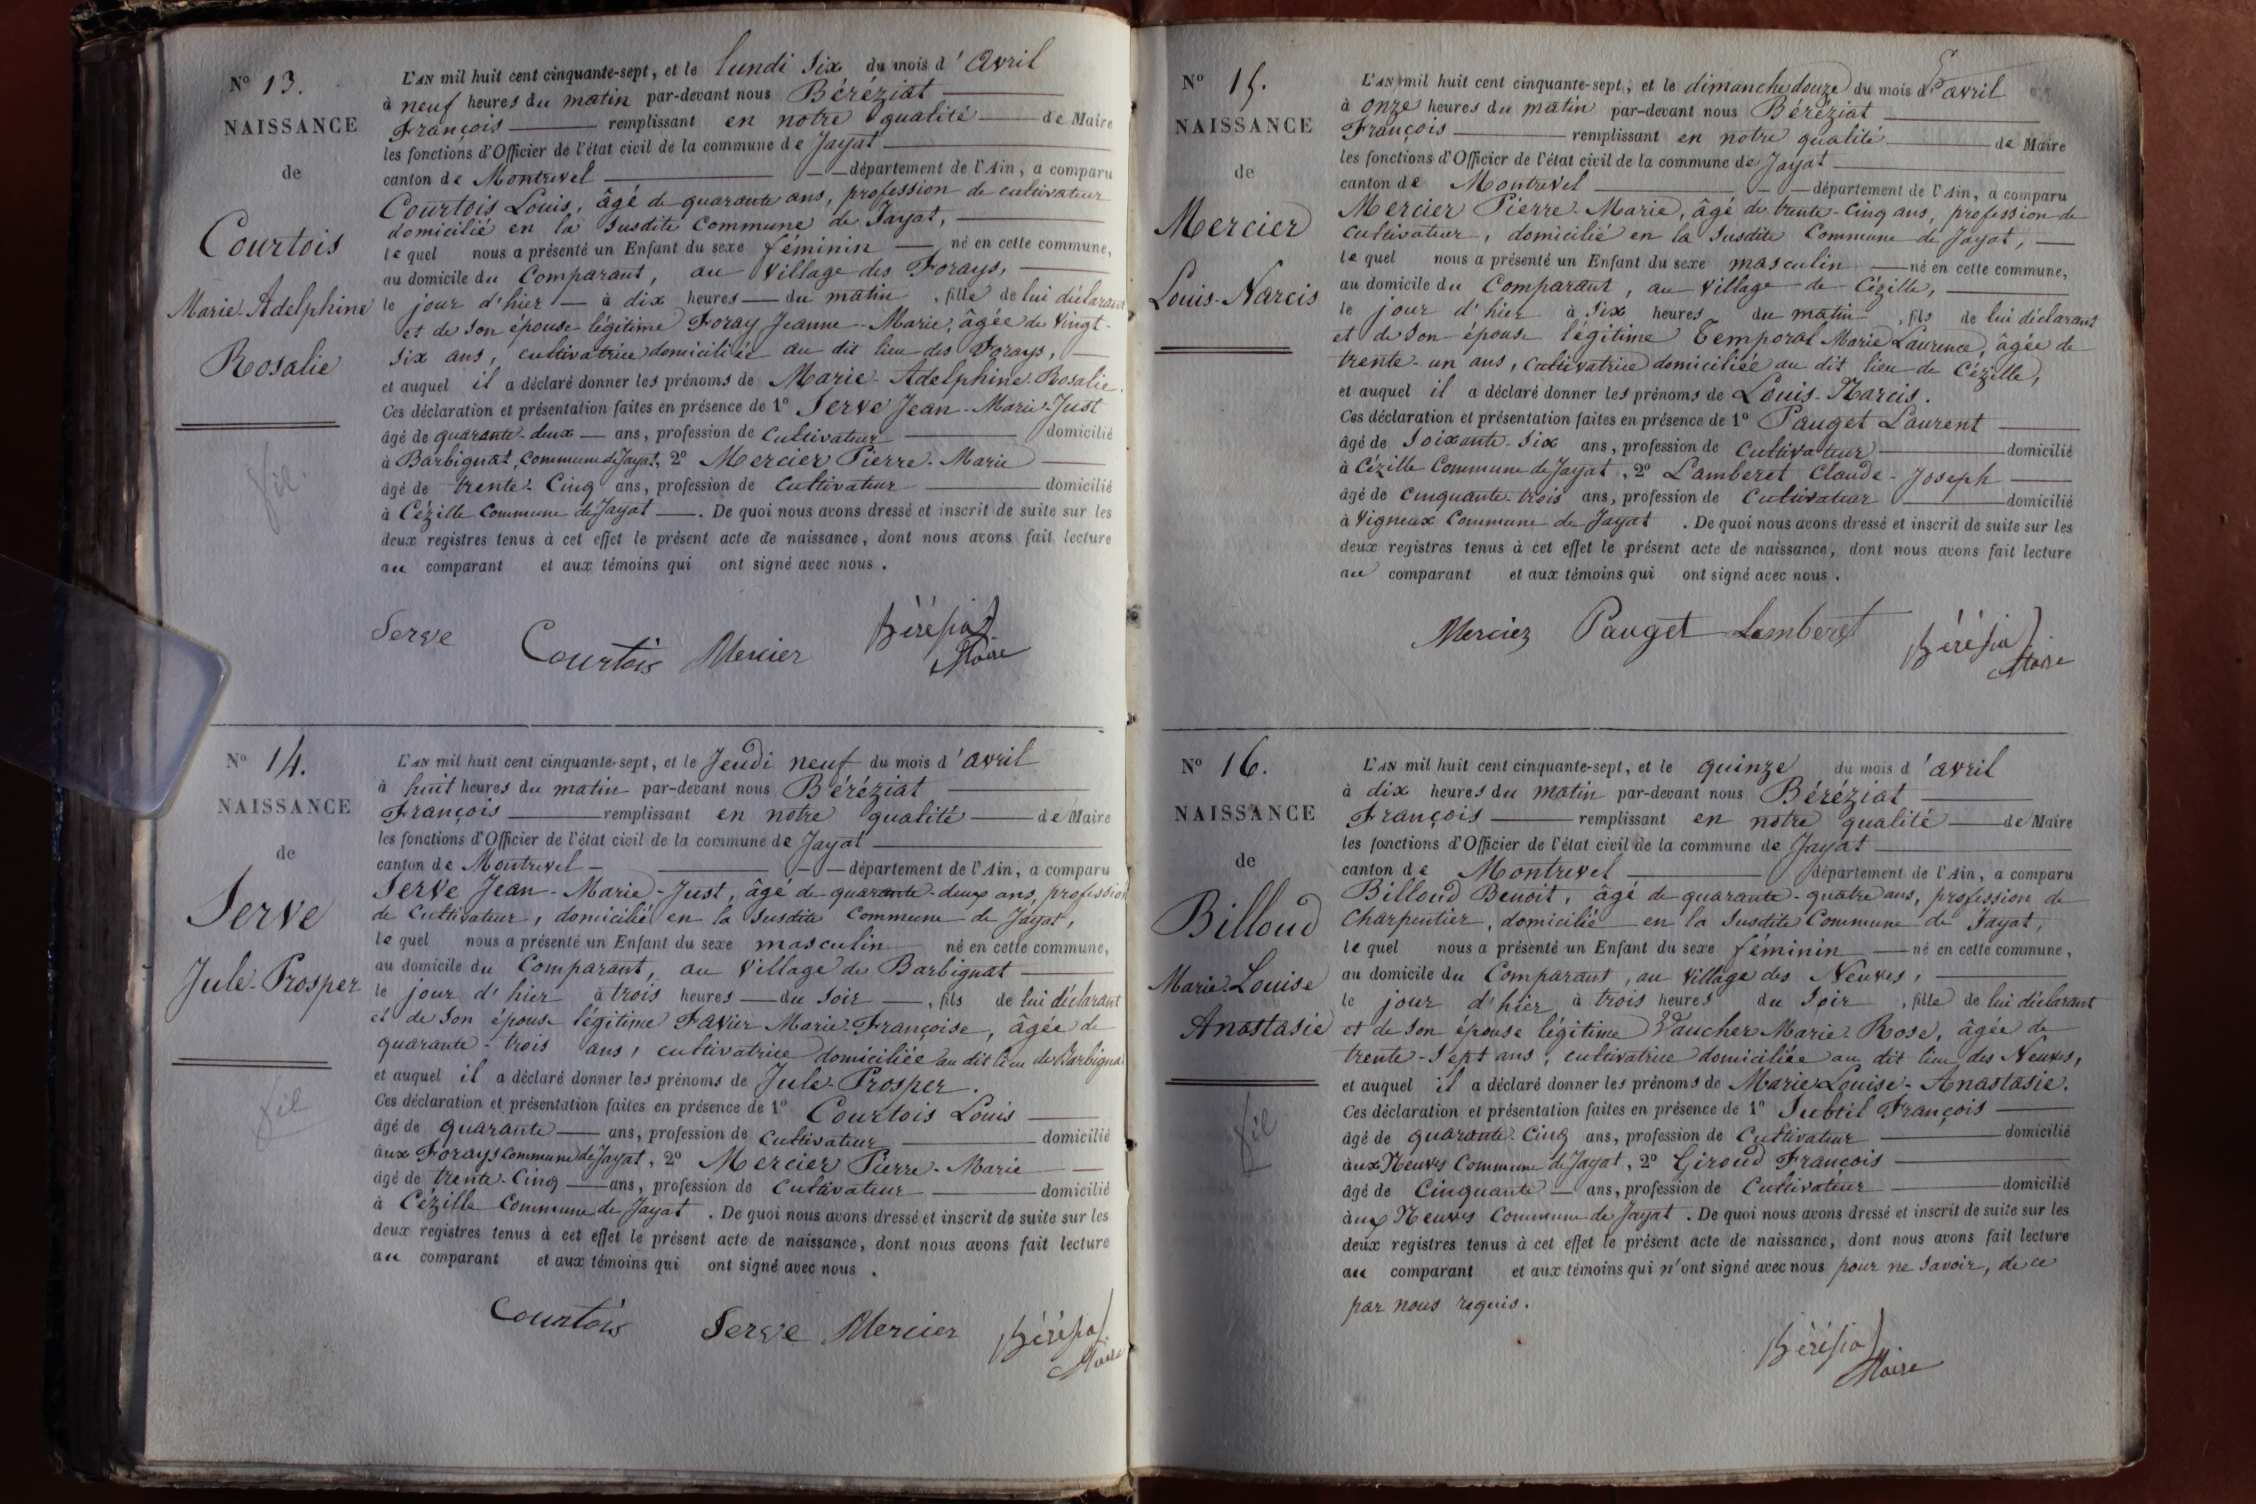 N° 13.
NAISSANCE
de
Courtois
Marie-Adelphine
Rosalie
fil.
L'AN mil huit cent cinquante-sept, et le lundi Six du mois d'avril
à neuf heures du matin par-devant nous Béréziat
François remplissant en notre qualité de Maire
les fonctions d'Officier de l'état civil de la commune de Jayat
canton de Montrevel département de l'Ain, a comparu
Courtois Louis, âgé de quarante ans, profession de cultivateur
domicilié en la susdite Commune de Jayat,
lequel nous a présenté un Enfant du sexe féminin né en cette commune,
au domicile du Comparant, au Village des Forays,
le jour d'hier à dix heures du matin, fille de lui déclarant
et de son épouse légitime Foray Jeanne-Marie, âgée de Vingt-
six ans, cultivatrice domiciliée au dit lieu des Forays,
et auquel il a déclaré donner les prénoms de Marie-Adelphine-Rosalie.
Ces déclaration et présentation faites en présence de 1° Serve Jean-Marie-Just
âgé de quarante-deux ans, profession de Cultivateur domicilié
à Barbignat, Commune de Jayat, 2° Mercier Pierre-Marie
âgé de trente-Cinq ans, profession de Cultivateur domicilié
à Cézille Commune de Jayat. De quoi nous avons dressé et inscrit de suite sur les
deux registres tenus à cet effet le présent acte de naissance, dont nous avons fait lecture
au comparant et aux témoins qui ont signé avec nous.
Serve Courtois Mercier Béréziat
Maire
N° 14.
NAISSANCE
de
Serve
Jule-Prosper
fil
L'AN mil huit cent cinquante-sept, et le Jeudi neuf du mois d'avril
à huit heures du matin par-devant nous Béréziat
François remplissant en notre qualité de Maire
les fonctions d'Officier de l'état civil de la commune de Jayat
canton de Montrevel département de l'Ain, a comparu
Serve Jean-Marie-Just, âgé de quarante-deux ans, profession
de Cultivateur, domicilié en la susdite Commune de Jayat,
lequel nous a présenté un Enfant du sexe masculin né en cette commune,
au domicile du Comparant, au Village de Barbignat
le jour d'hier à trois heures du Soir, fils de lui déclarant
et de son épouse légitime Favier Marie-Françoise, âgée de
quarante-trois ans, cultivatrice domiciliée au dit lieu de Barbignat
et auquel il a déclaré donner les prénoms de Jule-Prosper.
Ces déclaration et présentation faites en présence de 1° Courtois Louis
âgé de quarante ans, profession de Cultivateur domicilié
aux Forays commune de Jayat, 2° Mercier Pierre-Marie
âgé de trente-Cinq ans, profession de Cultivateur domicilié
à Cézille Commune de Jayat. De quoi nous avons dressé et inscrit de suite sur les
deux registres tenus à cet effet le présent acte de naissance, dont nous avons fait lecture
au comparant et aux témoins qui ont signé avec nous.
Courtois Serve Mercier Béréziat
Maire
N° 15.
NAISSANCE
de
Mercier
Louis-Narcis
L'AN mil huit cent cinquante-sept, et le dimanche douze du mois d'avril
à onze heures du matin par-devant nous Béréziat
François remplissant en notre qualité de Maire
les fonctions d'Officier de l'état civil de la commune de Jayat
canton de Montrevel département de l'Ain, a comparu
Mercier Pierre-Marie, âgé de trente-Cinq ans, profession de
cultivateur, domicilié en la susdite Commune de Jayat,
lequel nous a présenté un Enfant du sexe masculin né en cette commune,
au domicile du Comparant, au Village de Cézille,
le jour d'hier à Six heures du matin, fils de lui déclarant
et de son épouse légitime Temporal Marie Laurence, âgée de
trente-un ans, Cultivatrice domiciliée au dit lieu de Cézille,
et auquel il a déclaré donner les prénoms de Louis-Narcis.
Ces déclaration et présentation faites en présence de 1° Pauget Laurent
âgé de soixante-Six ans, profession de Cultivateur domicilié
à Cézille Commune de Jayat, 2° Lamberet Claude-Joseph
âgé de Cinquante-trois ans, profession de Cultivateur domicilié
à Vigneux Commune de Jayat. De quoi nous avons dressé et inscrit de suite sur les
deux registres tenus à cet effet le présent acte de naissance, dont nous avons fait lecture
au comparant et aux témoins qui ont signé avec nous.
Mercier Pauget Lamberet Béréziat
Maire
N° 16.
NAISSANCE
de
Billoud
Marie-Louise
Anastasie
fil
L'AN mil huit cent cinquante-sept, et le quinze du mois d'avril
à dix heures du matin par-devant nous Béréziat
François remplissant en notre qualité de Maire
les fonctions d'Officier de l'état civil de la commune de Jayat
canton de Montrevel département de l'Ain, a comparu
Billoud Benoit, âgé de quarante-quatre ans, profession de
Charpentier, domicilié en la susdite Commune de Jayat,
lequel nous a présenté un Enfant du sexe féminin né en cette commune,
au domicile du Comparant, au Village des Neuves,
le jour d'hier à trois heures du Soir, fille de lui déclarant
et de son épouse légitime Vaucher Marie-Rose, âgée de
trente-sept ans, cultivatrice domiciliée au dit lieu des Neuves,
et auquel il a déclaré donner les prénoms de Marie Louise-Anastasie.
Ces déclaration et présentation faites en présence de 1° Subtil François
âgé de quarante-Cinq ans, profession de Cultivateur domicilié
aux Neuves Commune de Jayat, 2° Giroud François
âgé de Cinquante ans, profession de Cultivateur domicilié
aux Neuves Commune de Jayat. De quoi nous avons dressé et inscrit de suite sur les
deux registres tenus à cet effet le présent acte de naissance, dont nous avons fait lecture
au comparant et aux témoins qui n'ont signé avec nous pour ne savoir, de ce
par nous requis.
Béréziat
Maire